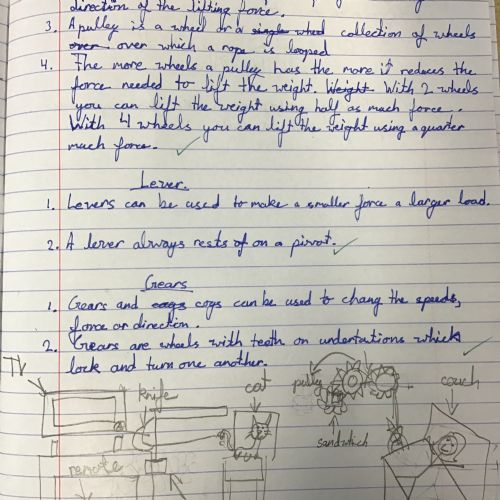 direction of the lifting force.
3. A pulley is a wheel or a single wheel collection of wheels
over over which a rope is looped
4. The more wheels a pulley has the more it reduces the
force needed to lift the weight. Weight With 2 wheels
you can lift the weight using half as much force.
With 4 wheels you can lift the weight using a quarter
much force.
Lever.
1. Levers can be used to make a smaller force a larger load.
2. A lever always rests of on a pivot.
Gears
1. Gears and cogs can be used to chang the speeds,
force or direction.
2. Gears are wheels with teeth on undertations which
lock and turn one another.
TV
knife
cat
pulley
couch
sandwhich
remote